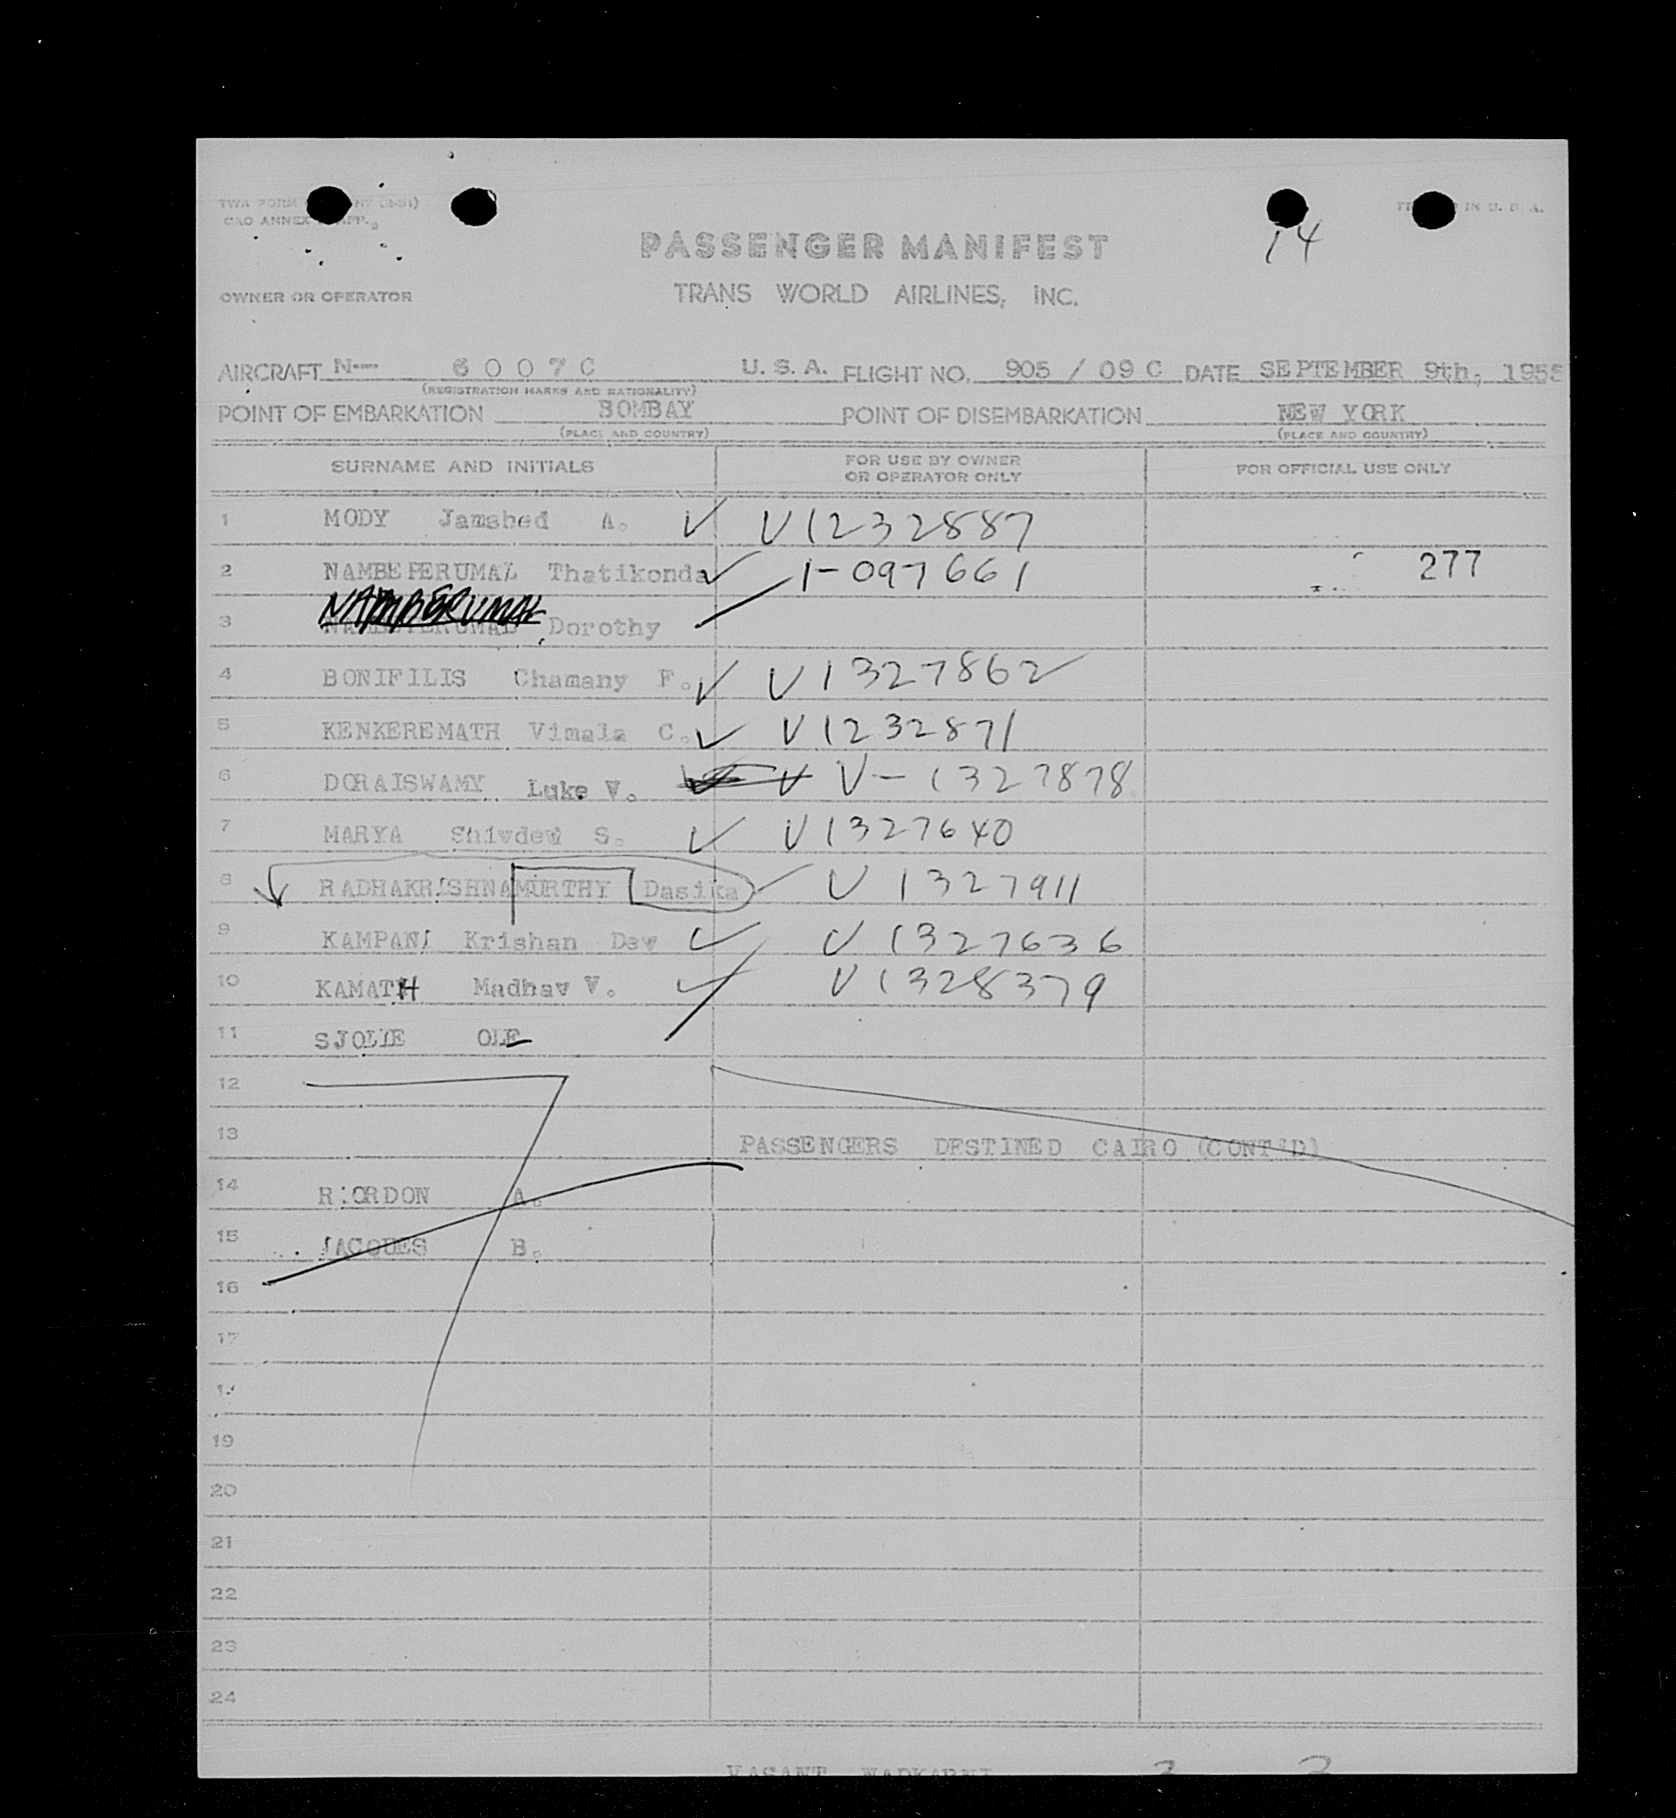 TWA FORM
CAO ANNEX
IN U. S. A.
14
PASSENGER MANIFEST
OWNER OR OPERATOR
TRANS WORLD AIRLINES, INC.
AIRCRAFT N-- 6007C U.S.A. FLIGHT NO. 905 / 09 C DATE SEPTEMBER 9th, 1955
(REGISTRATION MARKS AND NATIONALITY)
POINT OF EMBARKATION BOMBAY POINT OF DISEMBARKATION NEW YORK
(PLACE AND COUNTRY) (PLACE AND COUNTRY)
SURNAME AND INITIALS FOR USE BY OWNER OR OPERATOR ONLY FOR OFFICIAL USE ONLY
1 MODY Jamshed A. ✓ V1232887
2 NAMBEPERUMAL Thatikonda ✓ 1-097661 277
3 NAMBERUMAL Dorothy
4 BONIFILIS Chamany F. ✓ V1327862
5 KENKEREMATH Vimala C. ✓ V1232871
6 DORAISWAMY Luke V. ✓ V-1327878
7 MARYA Shivdev S. ✓ V1327640
8 RADHAKRISHNAMURTHY Dasika ✓ V1327911
9 KAMPANI Krishan Dev ✓ V1327636
10 KAMATH Madhav V. ✓ V1328379
11 SJOLIE OLE
12
13 PASSENGERS DESTINED CAIRO (CONT'D)
14 RIORDON A.
15 JACQUES B.
16
17
19
20
21
22
23
24
VASANT NADKARNI